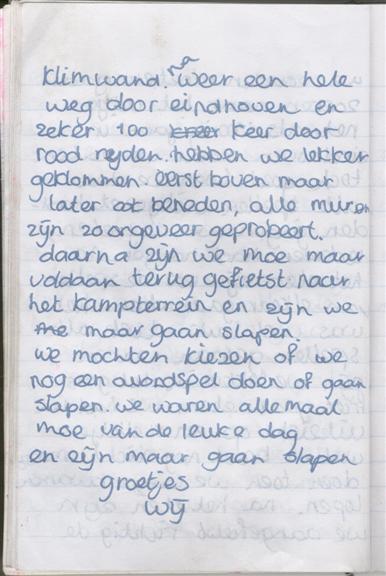 klimwand. na weer een hele
weg door eindhoven en
zeker 100 keer door
rood reyden. hebben we lekker
geklommen eerst boven maar
later beneden, alle muren
zijn zo ongeveer geprobeert.
daarna zijn we moe maar
voldaan terug gefietst naar
het kampterrein en zijn we
maar gaan slapen.
we mochten kiezen of we
nog een avondspel doen of gaan
slapen. we waren allemaal
moe van de leuke dag
en zijn maar gaan slapen
groetjes
wij